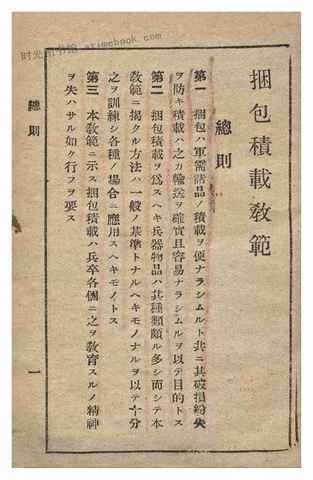 捆包積載敎範
總則
第一 捆包ハ軍需諸品ノ積載ヲ便ナラシムルト共ニ其破損紛失
ヲ防キ積載ハ之カ輸送ヲ確實且容易ナラシムルヲ以テ目的トス
第二 捆包積載ヲ爲スヘキ兵器物品ハ其種類頗ル多シ而シテ本
敎範ニ揭クル方法ハ一般ノ基準トナルヘキモノナルヲ以テ十分
之ヲ訓練シ各種ノ場合ニ應用スヘキモノトス
第三 本敎範ニ示ス捆包積載ハ兵卒各個ニ之ヲ敎育スルノ精神
ヲ失ハサル如ク行フヲ要ス
總則
一